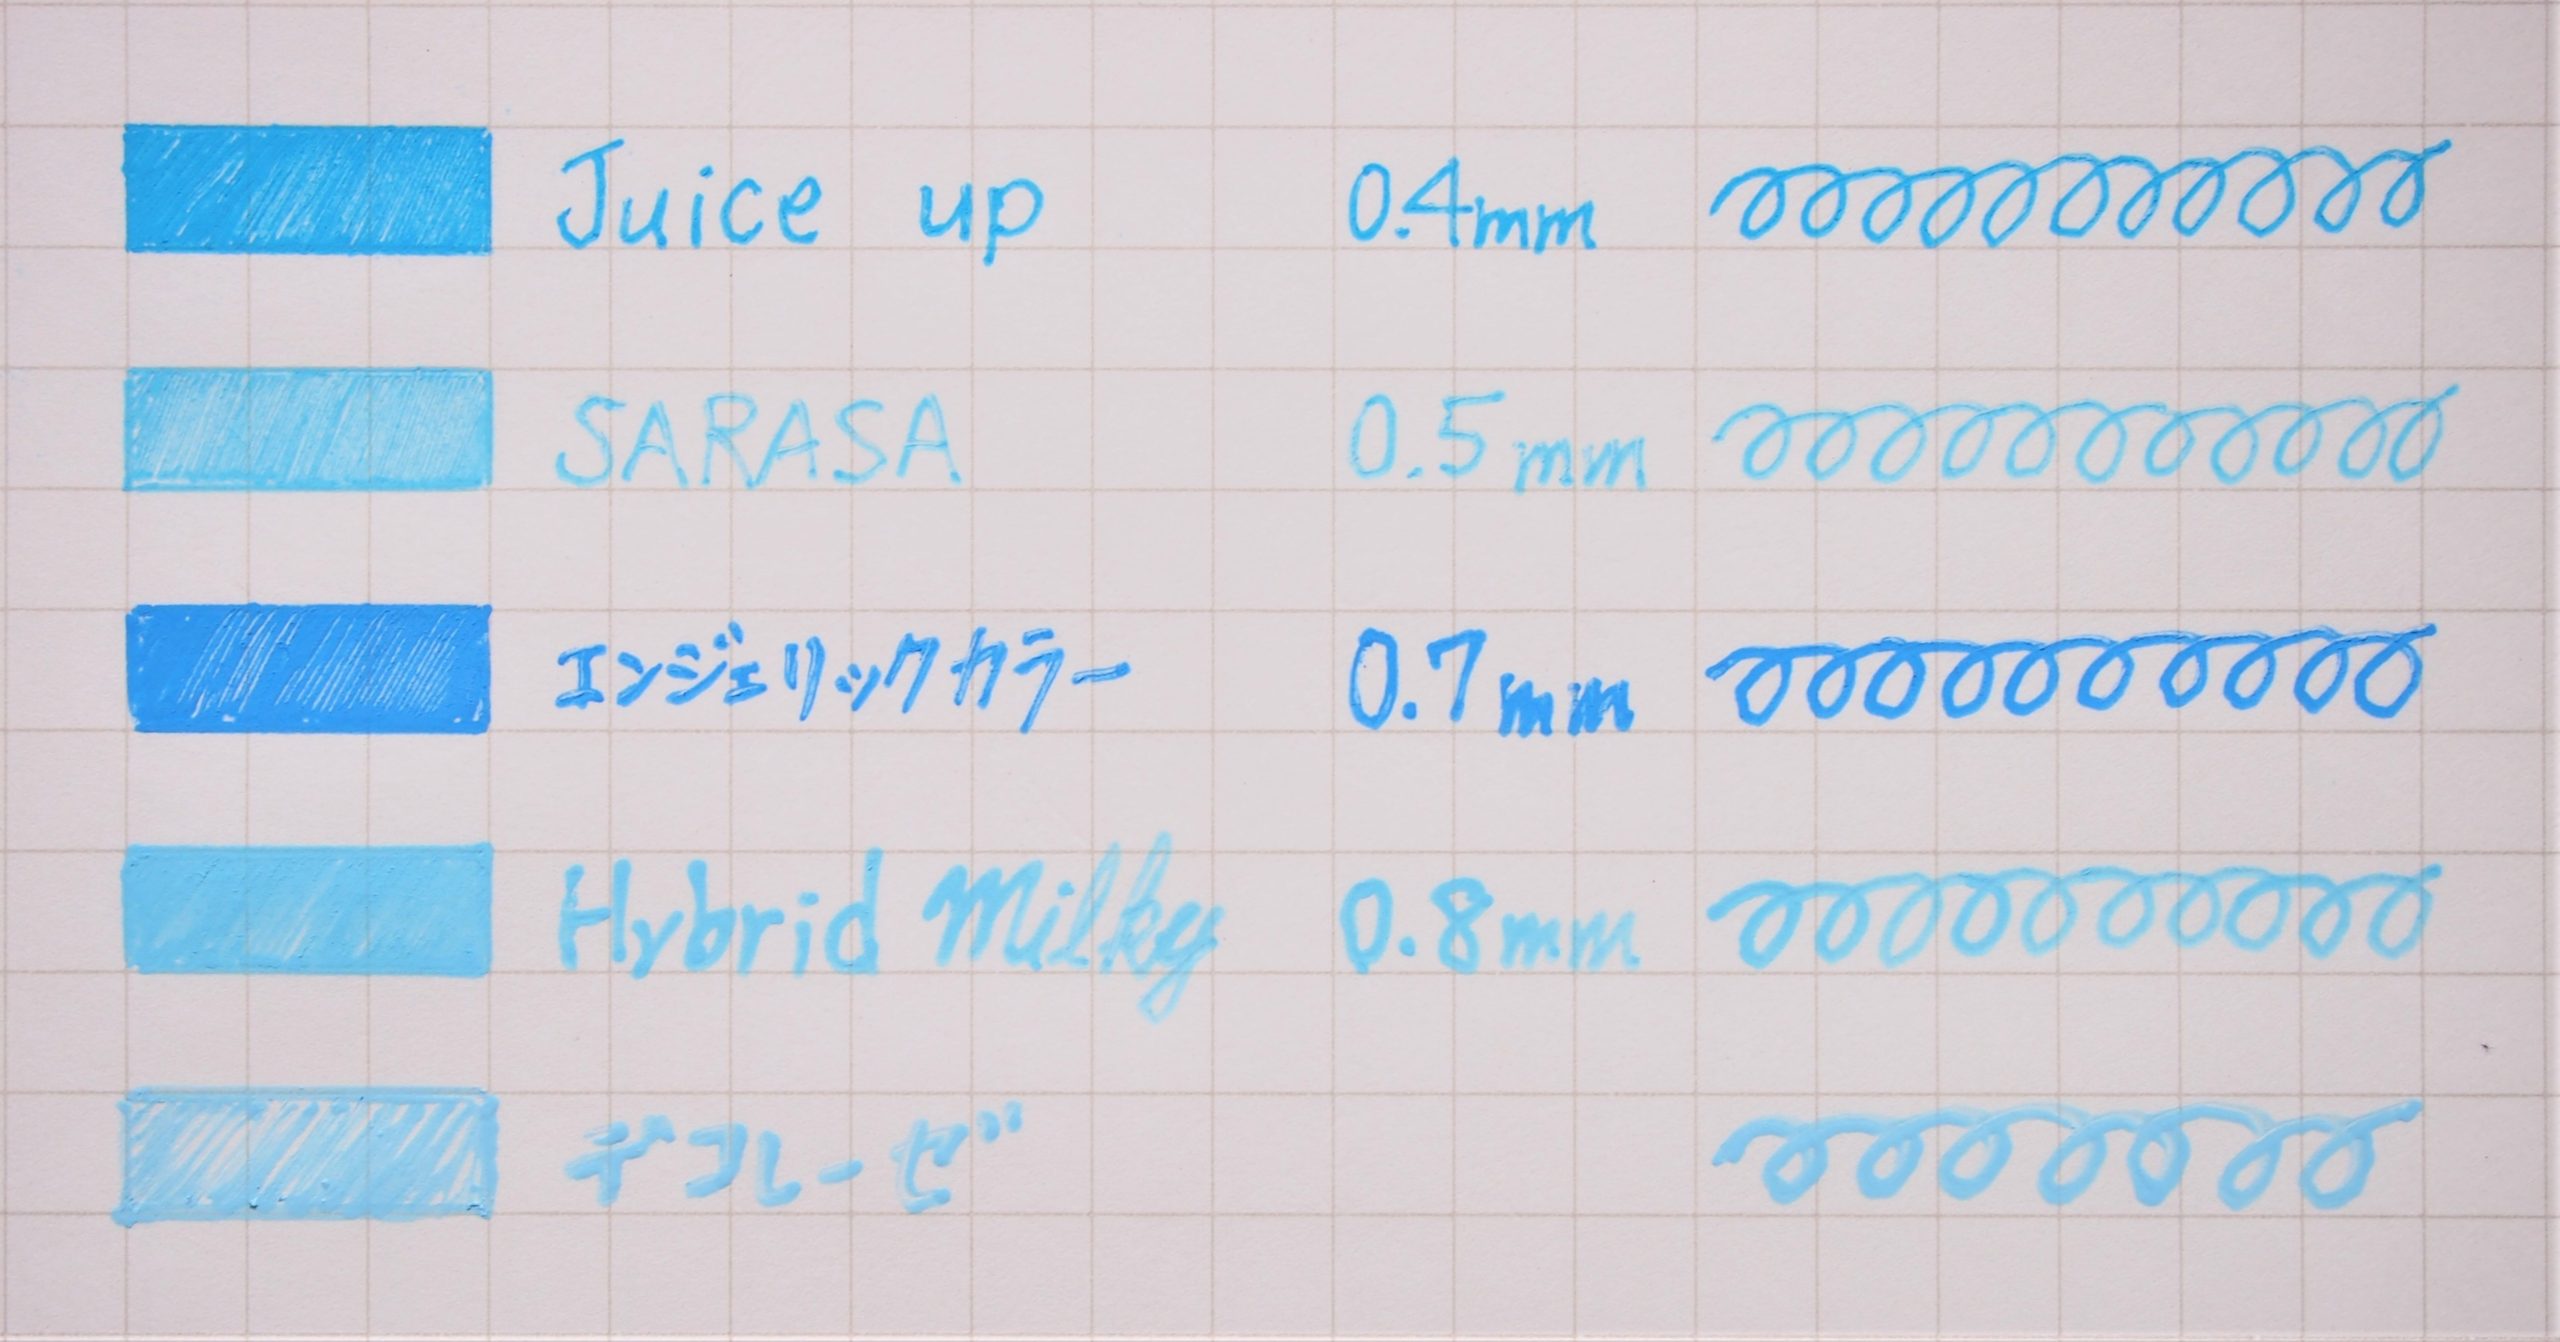 Juice up 0.4mm
SARASA 0.5mm
エンジェリックカラー 0.7mm
Hybrid Milky 0.8mm
デコレーゼ